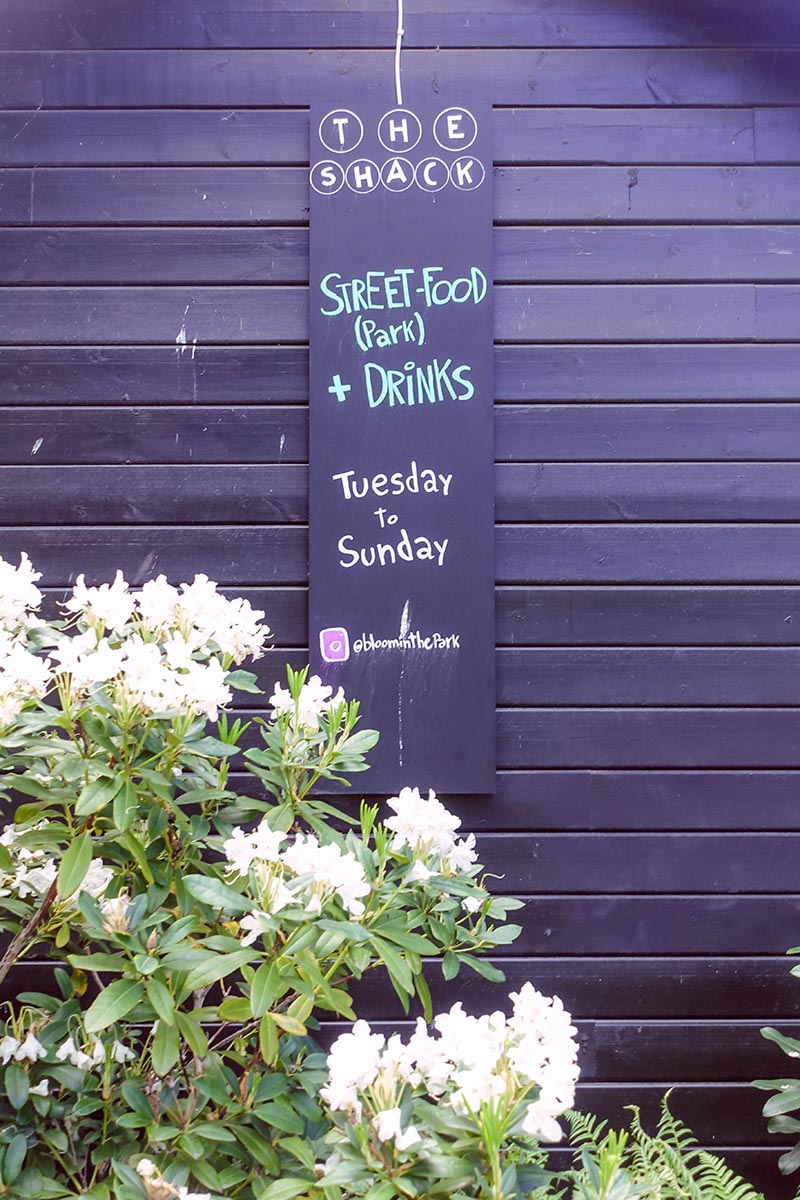 THE
SHACK
STREET-FOOD
(Park)
+ DRiNKS
Tuesday
to
Sunday
@bloominthePark